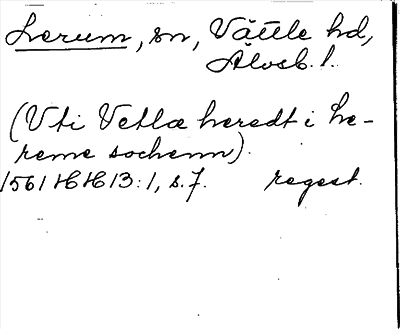 Lerum, sn, Vättle hd,
Älvsb. l.
(Uti Vetlæ heredt i Le-
reme sochenn).
1561 HH B:1, s.7. regest.